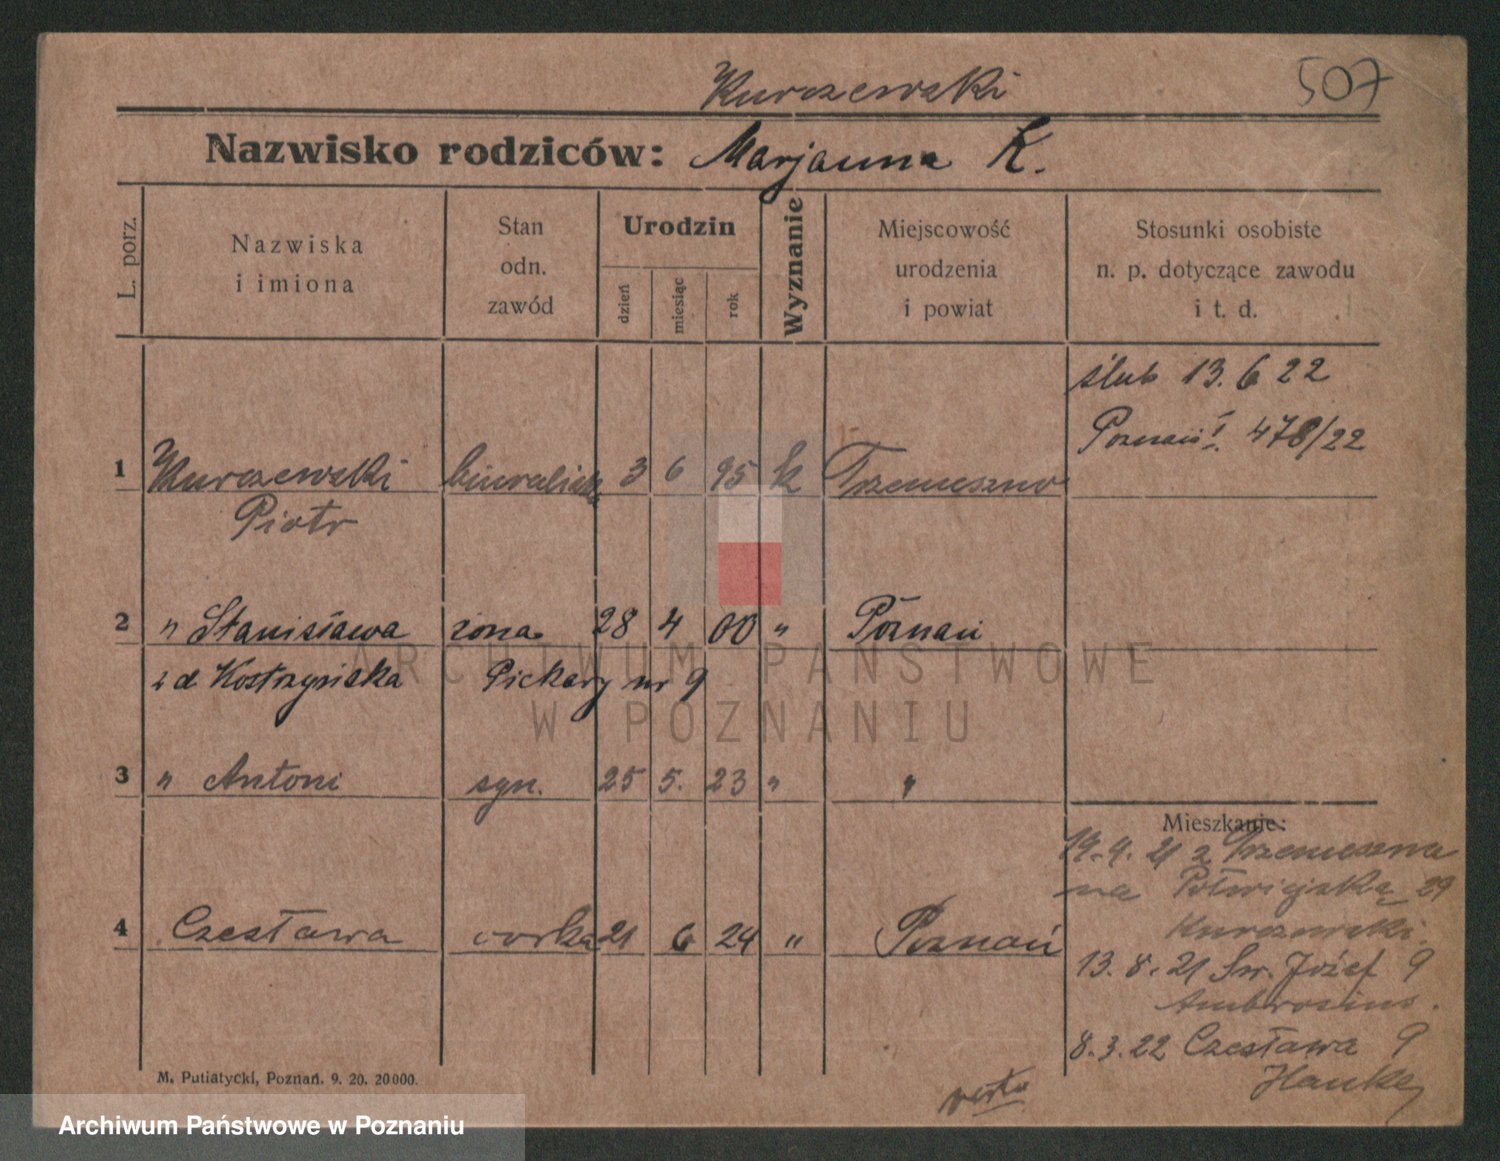 Kurczewski
507
Nazwisko rodziców: Marjanna K.
L. porz.
Nazwiska
i imiona
Stan
odn.
zawód
Urodzin
dzień
miesiąc
rok
Wyznanie
Miejscowość
urodzenia
i powiat
Stosunki osobiste
n. p. dotyczące zawodu
i t. d.
ślub 13. 6 22
Poznań I. 478/22
1 Kurczewski biuralista 3 6 95 k Trzemeszno
Piotr
2 " Stanisława żona 28 4 00 " Poznań
z d Kostrzyńska Piekary nr 9
ARCHIWUM PAŃSTWOWE
W POZNANIU
3 " Antoni syn. 25 5. 23 " "
4 Czesława córka 21 6 24 " Poznań
Mieszkanie:
19. 4. 21 z Trzemeszna
na Półwiejską 29
Kurczewski.
13. 8. 21 Św. Józef 9
Ambrosius.
8. 3. 22 Czesława 9
Hanke
verte
M. Putiatycki, Poznań. 9. 20. 20000.
Archiwum Państwowe w Poznaniu